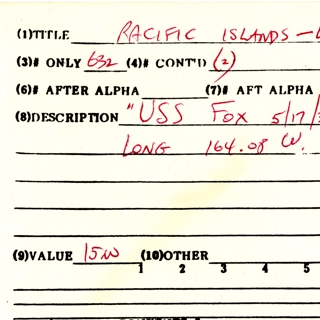 (1)TITLE PACIFIC ISLANDS –
(3)# ONLY 632 (4)# CONT'D (2)
(6)# AFTER ALPHA (7)# AFT ALPHA
(8)DESCRIPTION "USS FOX 5/17/
LONG 164.08 W.
(9)VALUE 15W (10)OTHER
1 2 3 4 5